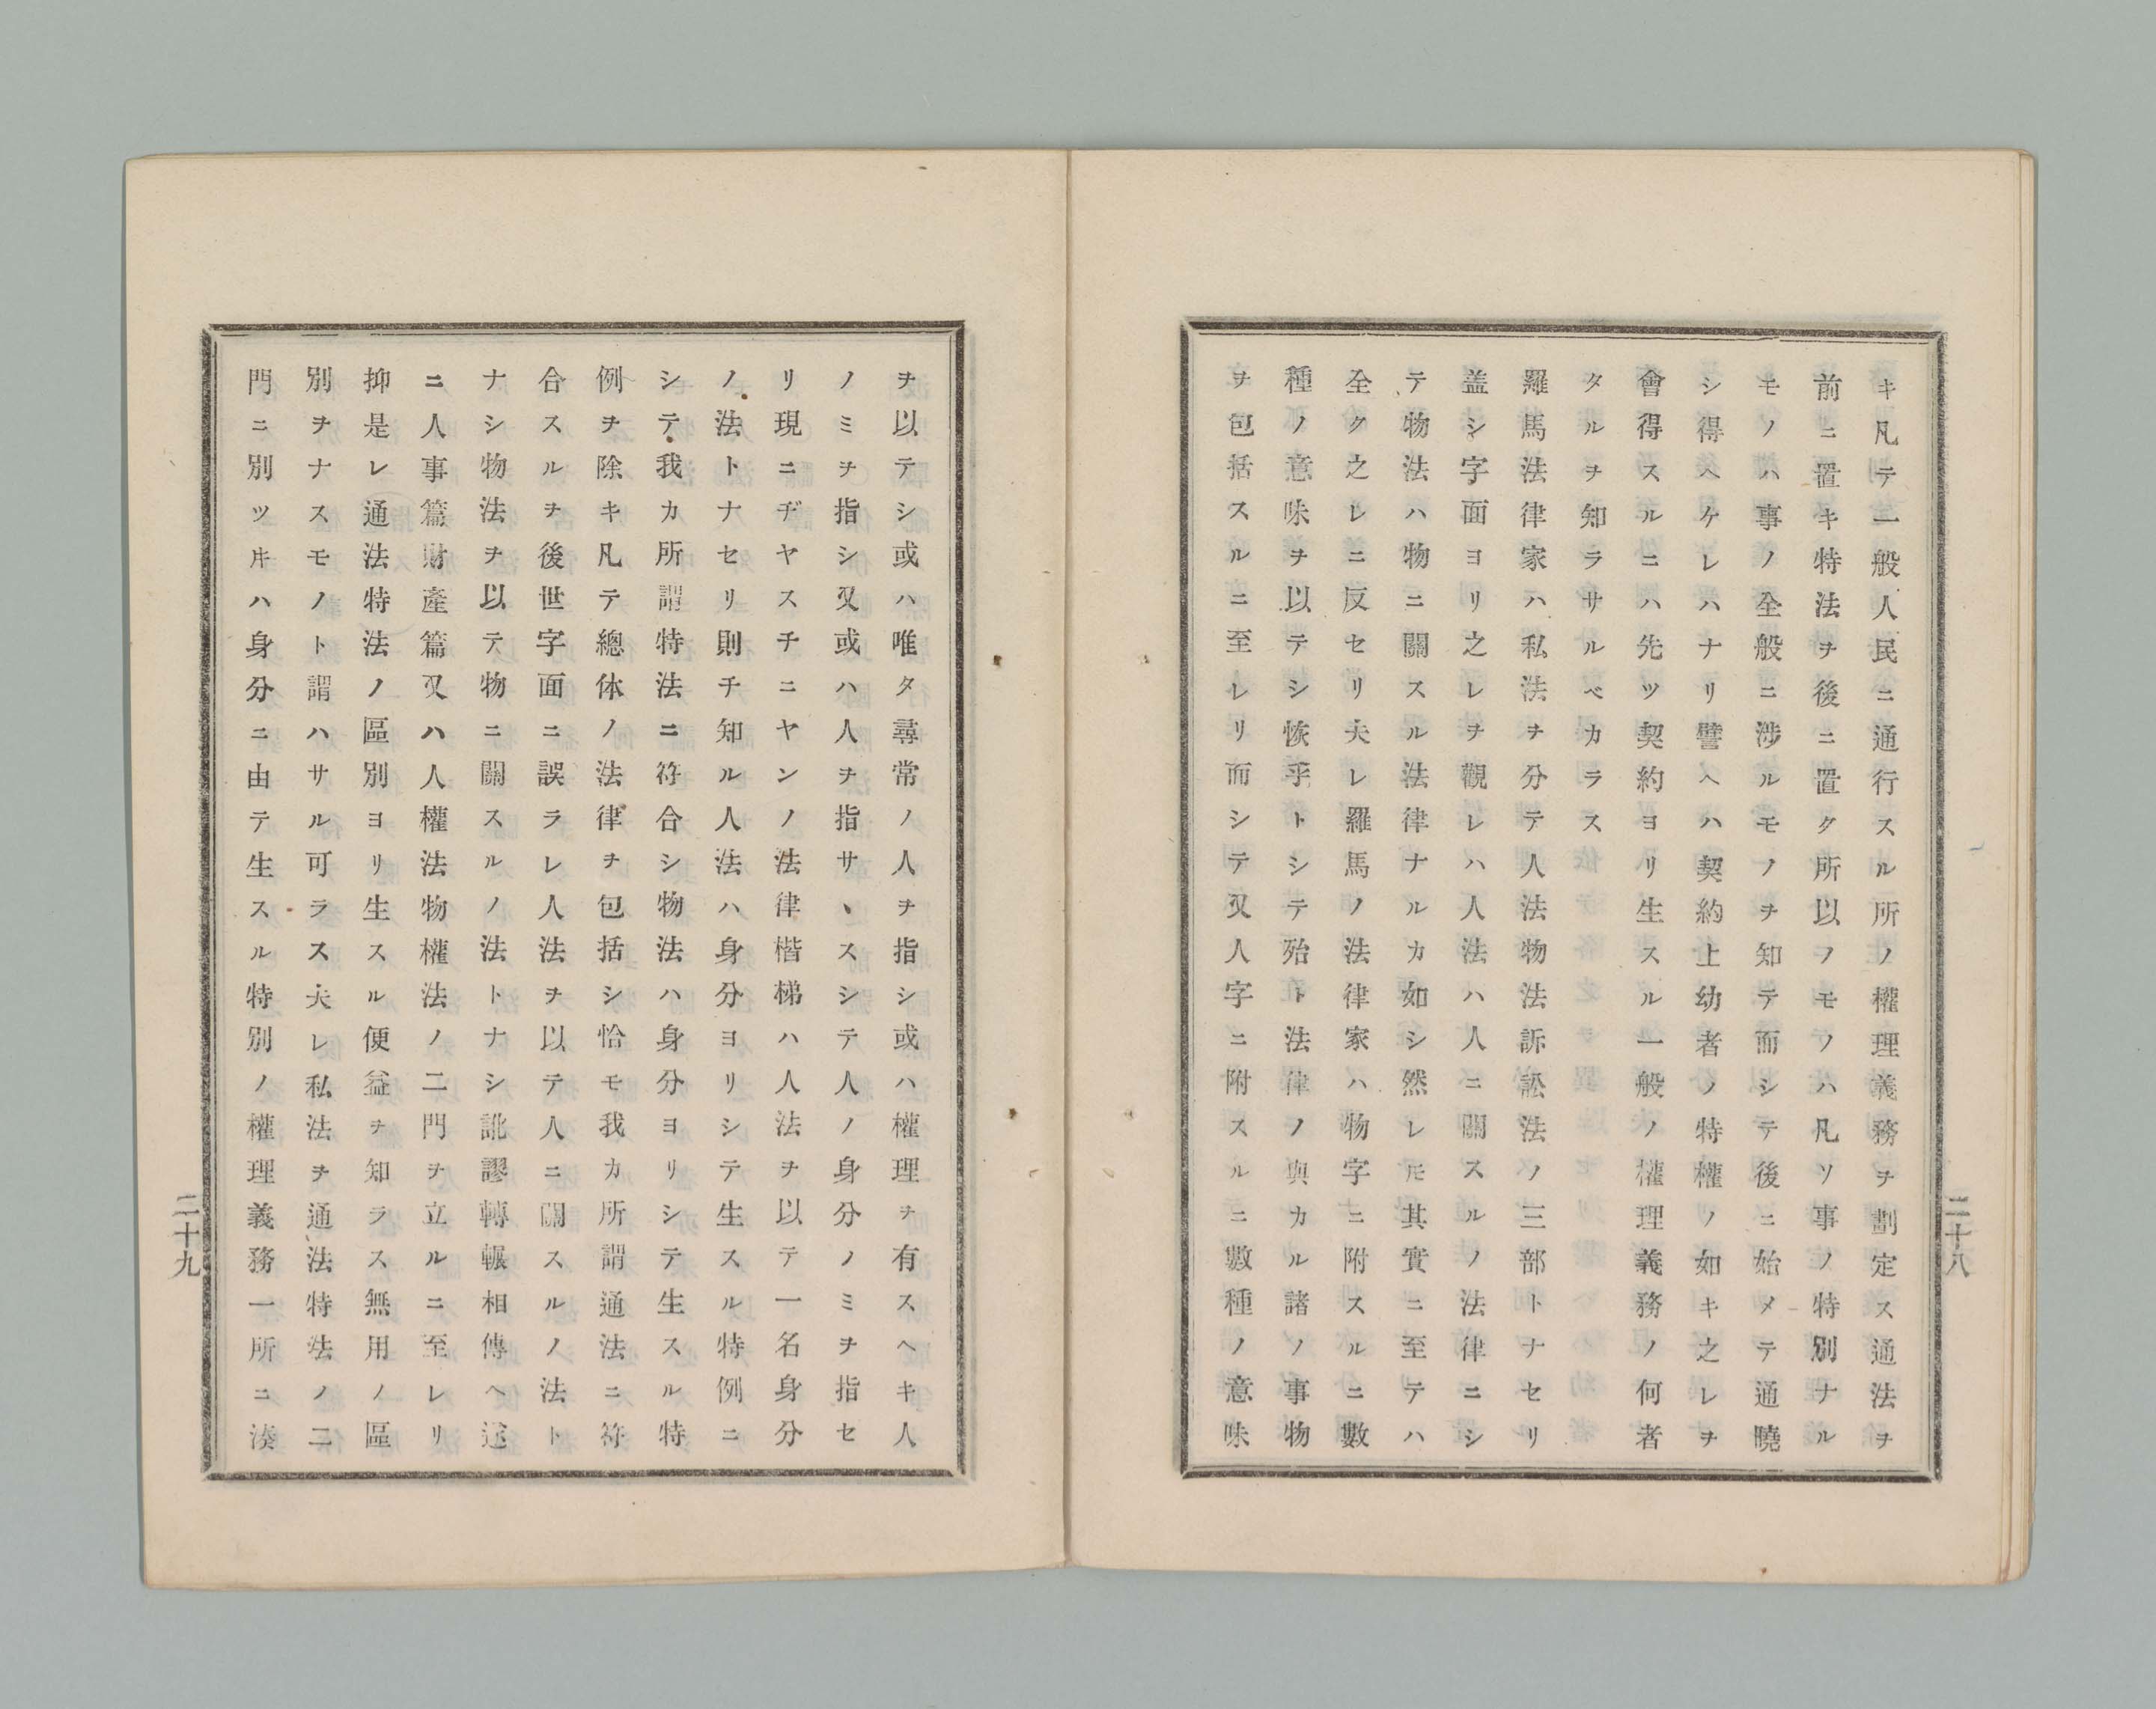 キ凡テ一般人民ニ通行スル所ノ權理義務ヲ劃定ス通法ヲ
前ニ置キ特法ヲ後ニ置ク所以ノモノハ凡ソ事ノ特別ナル
モノハ事ノ全般ニ涉ルモノヲ知テ而シテ後ニ始メテ通曉
シ得ヘケレハナリ譬ヘハ契約上幼者ノ特權ノ如キ之レヲ
會得スルニハ先ツ契約ヨリ生スル一般ノ權理義務ノ何者
タルヲ知ラサルベカラス
羅馬法律家ハ私法ヲ分テ人法物法訴訟法ノ三部トナセリ
盖シ字面ヨリ之レヲ觀レハ人法ハ人ニ關スルノ法律ニシ
テ物法ハ物ニ關スル法律ナルカ如シ然レ𪜈其實ニ至テハ
全ク之レニ反セリ夫レ羅馬ノ法律家ハ物字ニ附スルニ數
種ノ意味ヲ以テシ恢乎トシテ殆ト法律ノ與カル諸ノ事物
ヲ包括スルニ至レリ而シテ又人字ニ附スルニ數種ノ意味
二十八
ヲ以テシ或ハ唯タ尋常ノ人ヲ指シ或ハ權理ヲ有スヘキ人
ノミヲ指シ又或ハ人ヲ指サヽスシテ人ノ身分ノミヲ指セ
リ現ニヂヤスチニヤンノ法律楷梯ハ人法ヲ以テ一名身分
ノ法トナセリ則チ知ル人法ハ身分ヨリシテ生スル特例ニ
シテ我カ所謂特法ニ符合シ物法ハ身分ヨリシテ生スル特
例ヲ除キ凡テ總体ノ法律ヲ包括シ恰モ我カ所謂通法ニ符
合スルヲ後世字面ニ誤ラレ人法ヲ以テ人ニ關スルノ法ト
ナシ物法ヲ以テ物ニ關スルノ法トナシ訛謬轉輾相傳ヘ遂
ニ人事篇財產篇又ハ人權法物權法ノ二門ヲ立ルニ至レリ
抑是レ通法特法ノ區別ヨリ生スル便益ヲ知ラス無用ノ區
別ヲナスモノト謂ハサル可ラス夫レ私法ヲ通法特法ノ二
門ニ別ツ𪜈ハ身分ニ由テ生スル特別ノ權理義務一所ニ湊
二十九